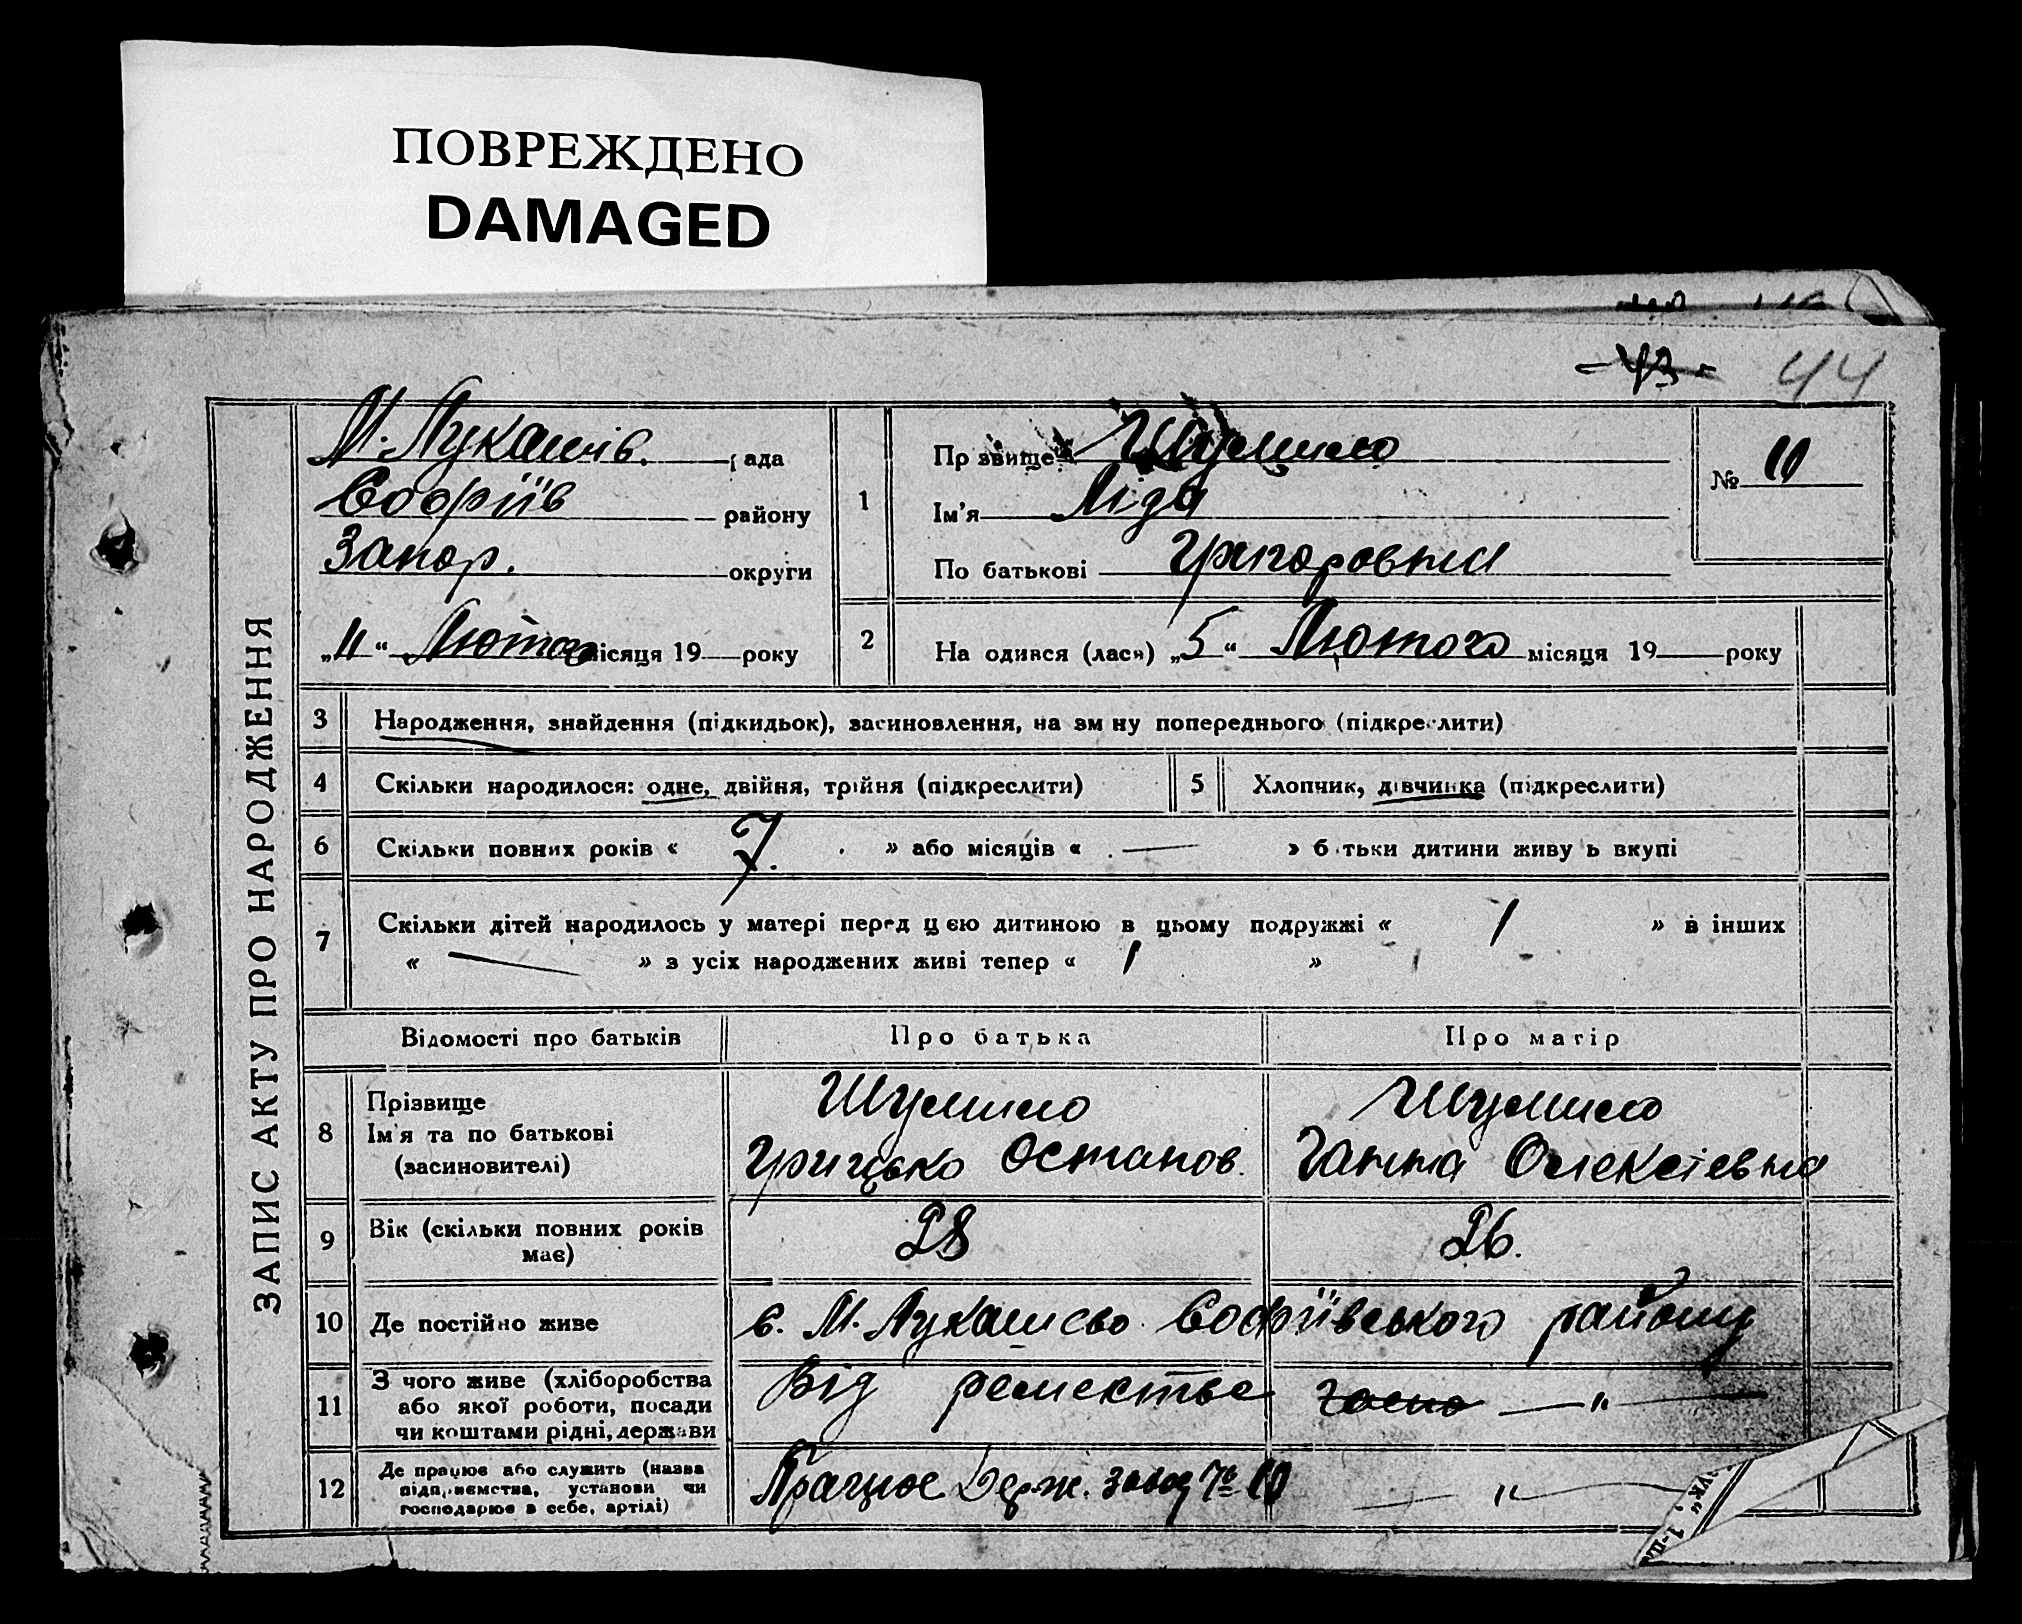 ПОВРЕЖДЕНО
DAMAGED
- 43 - 44
ЗАПИС АКТУ ПРО НАРОДЖЕННЯ
М. Лукашів. рада
Софіїв району
Запор. округи
„11“ Лютого місяця 19 року
1
Прізвище Шумило
Ім'я Ліда
По батькові Григоровна
№ 10
2 На одився (лася) „5“ Лютого місяця 19 року
3 Народження, знайдення (підкидьок), засиновлення, на зм ну попереднього (підкреслити)
4 Скільки народилося: одне, двійня, трійня (підкреслити) 5 Хлопчик, дівчинка (підкреслити)
6 Скільки повних років « 7. » або місяців « — » б тьки дитини живу ь вкупі
7 Скільки дітей народилось у матері перед цею дитиною в цьому подружжі « 1 » в інших
« — » з усіх народжених живі тепер « 1 »
Відомості про батьків Про батька Про матір
8 Прізвище Шумило Шумило
Ім'я та по батькові Грицько Остапов. Ганна Олексіевна
(засиновителі)
9 Вік (скільки повних років 28 26.
має)
10 Де постійно живе с. М. Лукашево Софіївського району
11 З чого живе (хліборобства Від ремества — " —
або якої роботи, посади
чи коштами рідні, держави
12 Де працює або служить (назва Працює Держ. завод № 10 — " —
підприємства, установи чи
господарює в себе, артілі)